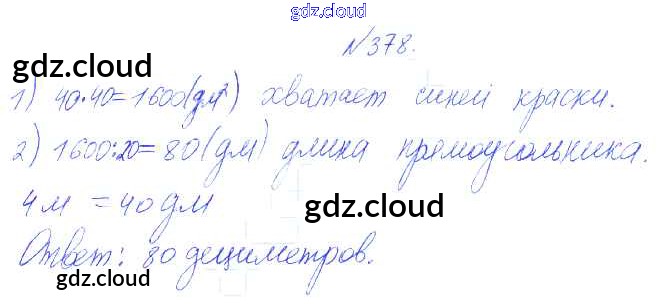 gdz.cloud
№378.
gdz.cloud
1) 40·40=1600(дм²) хватает синей краски.
2) 1600:20=80(дм) длина прямоугольника.
4м = 40дм
gdz.cloud
Ответ: 80 дециметров.
gdz.cloud
gdz.cloud